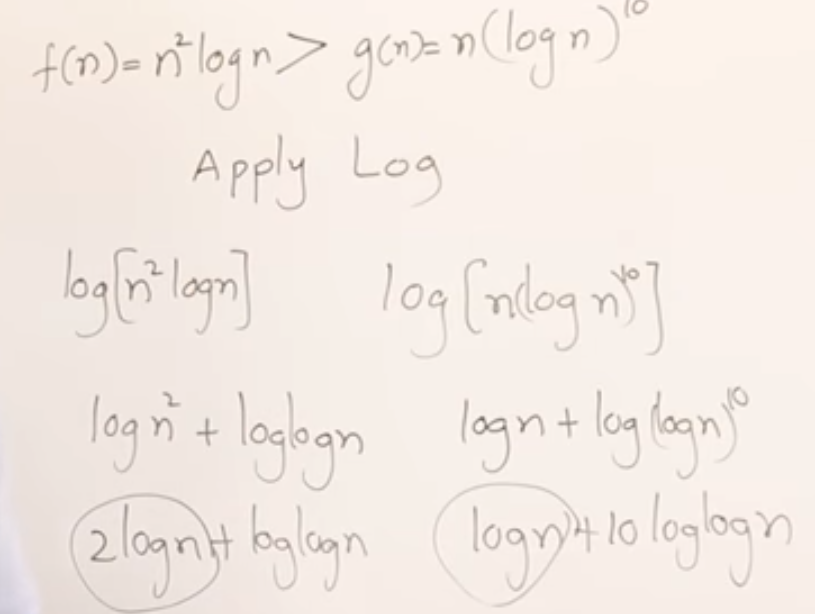 f(n) = n² log n > g(n) = n(log n)¹⁰
Apply Log
log[n² logn] log[n(log n)¹⁰]
log n² + loglogn logn + log(logn)¹⁰
2logn + loglogn logn + 10 loglogn